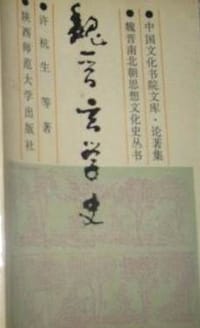 ●中国文化书院文库·论著集
●魏晋南北朝思想文化史丛书
魏晋玄学史
●许杭生 等著
●陕西师范大学出版社